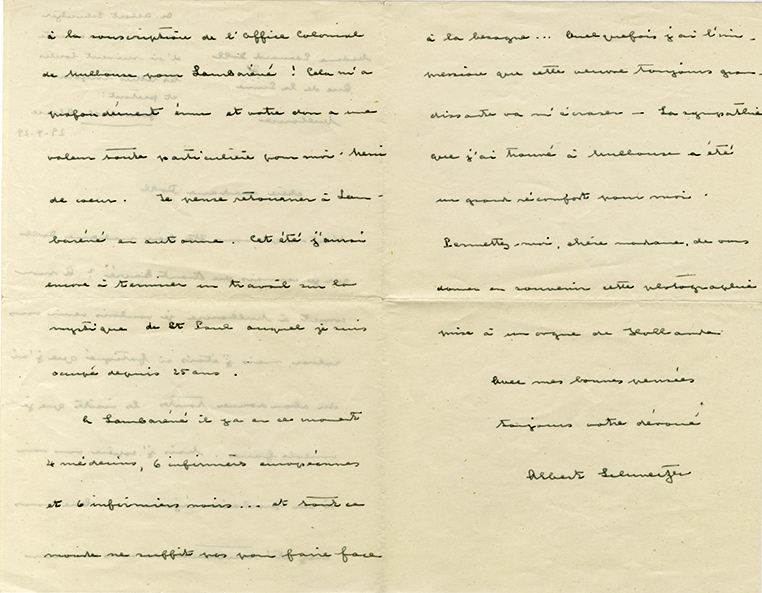 à la souscription de l'Office Colonial
de Mulhouse pour Lambaréné ! Cela m'a
profondément ému et votre don a une
valeur toute particulière pour moi. Merci
de coeur. Je pense retourner à Lam-
baréné en automne. Cet été j'aurai
encore à terminer un travail sur la
mystique de St Paul auquel je suis
occupé depuis 25 ans.
A Lambaréné il y a en ce moment
4 médecins, 6 infirmières européennes
et 6 infirmiers noirs... et tout ce
monde ne suffit pas pour faire face
à la besogne... Quelquefois j'ai l'im-
pression que cette oeuvre toujours gran-
dissante va m'écraser — La sympathie
que j'ai trouvé à Mulhouse a été
un grand réconfort pour moi.
Permettez-moi, chère madame, de vous
donner en souvenir cette photographie
prise à un orgue de Hollande
Avec mes bonnes pensées
toujours votre dévoué
Albert Schweitzer